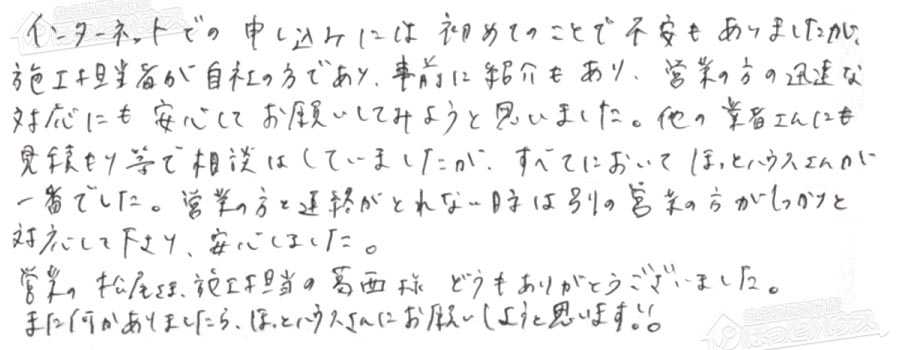 インターネットでの申し込みには初めてのことで不安もありましたが、
施工担当者が自社の方であり、事前に紹介もあり、営業の方の迅速な
対応にも安心してお願いしてみようと思いました。他の業者さんにも
見積もり等で相談はしていましたが、すべてにおいてほっとハウスさんが
一番でした。営業の方と連絡がとれない時は別の営業の方がしっかりと
対応して下さり、安心しました。
営業の松尾さま、施工担当の葛西様 どうもありがとうございました。
また何かありましたら、ほっとハウスさんにお願いしようと思います!!。
ほっとハウス